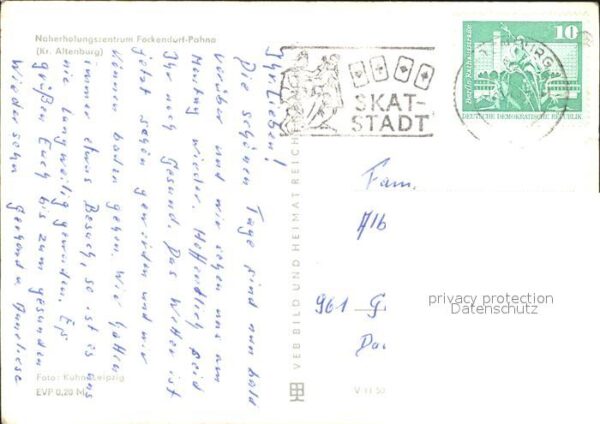 Naherholungszentrum Fockendorf-Pahna
(Kr. Altenburg)
Ihr Lieben!
Die schönen Tage sind nun bald
vorüber und wir sehen uns am
Montag wieder. Hoffentlich seid
Ihr noch gesund. Das Wetter ist
jetzt schön geworden und wir
können baden gehen. Wir hatten
immer etwas Besuch, so ist es uns
nie langweilig geworden. Es
grüßen Euch bis zum gesunden
Wiedersehn Gerhard u. Anneliese
Foto: Kühn, Leipzig
EVP 0,20 M
VEB BILD UND HEIMAT REICH
V 11 50
SKAT-
STADT
BURG
10
Berlin, Rathausstraße
DEUTSCHE DEMOKRATISCHE REPUBLIK
Fam.
Alb
961 G.
Da
privacy protection
Datenschutz